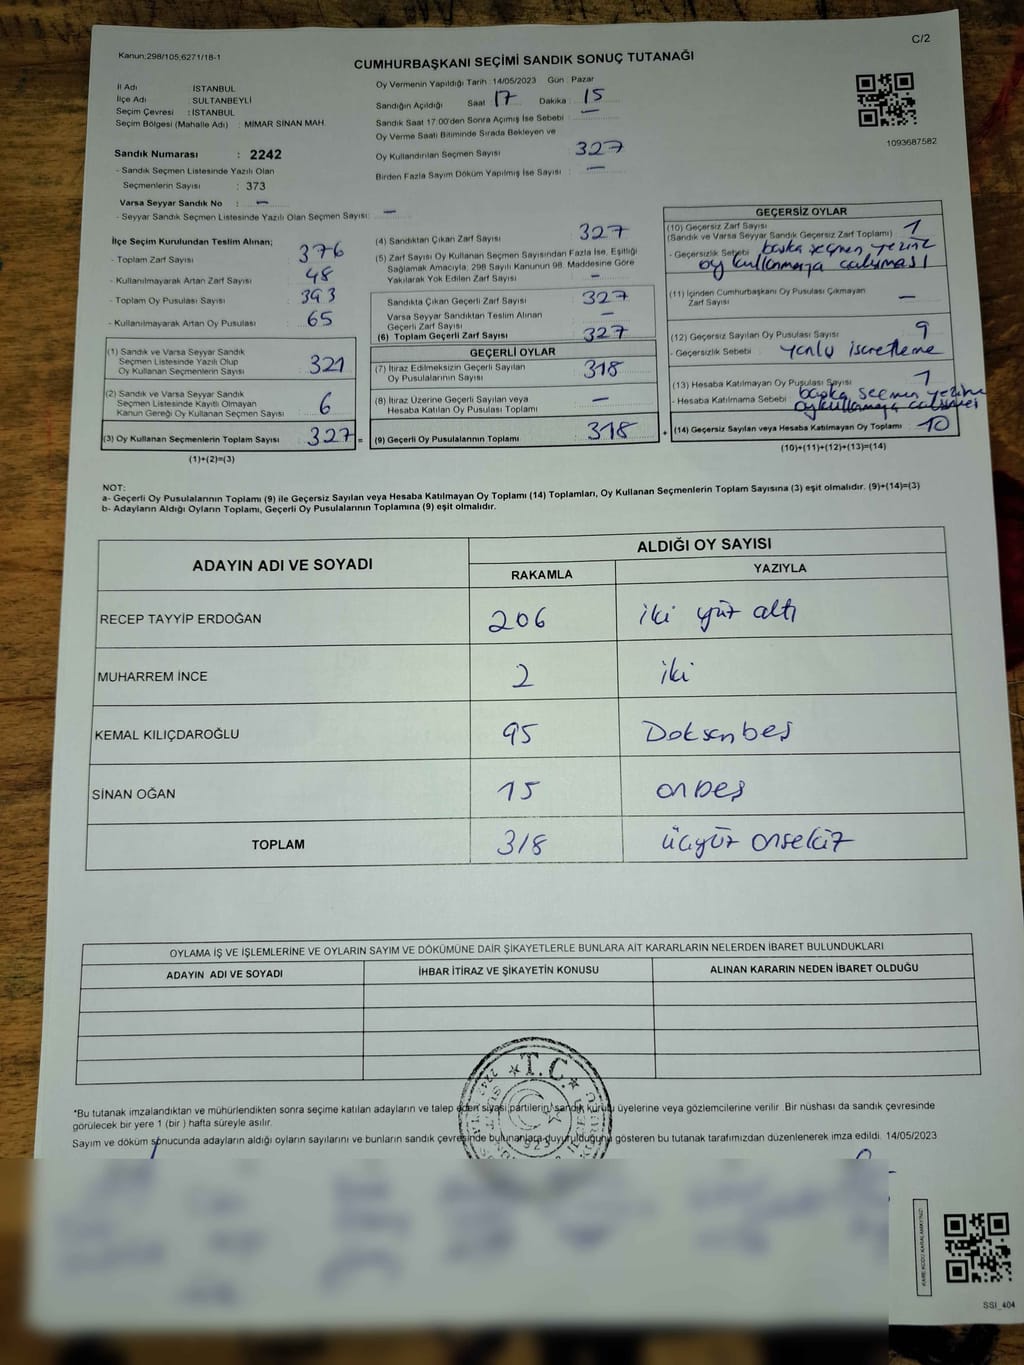 C/2
Kanun:298/105;6271/18-1
CUMHURBAŞKANI SEÇİMİ SANDIK SONUÇ TUTANAĞI
İl Adı : İSTANBUL
İlçe Adı : SULTANBEYLİ
Seçim Çevresi : İSTANBUL
Seçim Bölgesi (Mahalle Adı) : MİMAR SİNAN MAH.
Sandık Numarası : 2242
- Sandık Seçmen Listesinde Yazılı Olan
Seçmenlerin Sayısı : 373
Varsa Seyyar Sandık No : —
- Seyyar Sandık Seçmen Listesinde Yazılı Olan Seçmen Sayısı: —
Oy Vermenin Yapıldığı Tarih : 14/05/2023 Gün : Pazar
Sandığın Açıldığı Saat 17 Dakika : 15
Sandık Saat 17:00'den Sonra Açımış İse Sebebi : —
Oy Verme Saati Bitiminde Sırada Bekleyen ve
Oy Kullandırılan Seçmen Sayısı : 327
Birden Fazla Sayım Döküm Yapılmış İse Sayısı : —
1093687582
İlçe Seçim Kurulundan Teslim Alınan;
- Toplam Zarf Sayısı : 376
- Kullanılmayarak Artan Zarf Sayısı : 48
- Toplam Oy Pusulası Sayısı : 393
- Kullanılmayarak Artan Oy Pusulası : 65
(1) Sandık ve Varsa Seyyar Sandık
Seçmen Listesinde Yazılı Olup
Oy Kullanan Seçmenlerin Sayısı : 321
(2) Sandık ve Varsa Seyyar Sandık
Seçmen Listesinde Kayıtlı Olmayan
Kanun Gereği Oy Kullanan Seçmen Sayısı : 6
(3) Oy Kullanan Seçmenlerin Toplam Sayısı : 327 =
(1)+(2)=(3)
(4) Sandıktan Çıkan Zarf Sayısı : 327
(5) Zarf Sayısı Oy Kullanan Seçmen Sayısından Fazla İse, Eşitliği
Sağlamak Amacıyla, 298 Sayılı Kanunun 98. Maddesine Göre
Yakılarak Yok Edilen Zarf Sayısı : —
Sandıkta Çıkan Geçerli Zarf Sayısı : 327
Varsa Seyyar Sandıktan Teslim Alınan
Geçerli Zarf Sayısı : —
(6) Toplam Geçerli Zarf Sayısı : 327
GEÇERLİ OYLAR
(7) İtiraz Edilmeksizin Geçerli Sayılan
Oy Pusulalarının Sayısı : 318
(8) İtiraz Üzerine Geçerli Sayılan veya
Hesaba Katılan Oy Pusulası Toplamı : —
(9) Geçerli Oy Pusulalarının Toplamı : 318 +
GEÇERSİZ OYLAR
(10) Geçersiz Zarf Sayısı
(Sandık ve Varsa Seyyar Sandık Geçersiz Zarf Toplamı) : 1
- Geçersizlik Sebebi : başka seçmen yerine
oy kullanmaya calışması
(11) İçinden Cumhurbaşkanı Oy Pusulası Çıkmayan
Zarf Sayısı : —
(12) Geçersiz Sayılan Oy Pusulası Sayısı : 9
- Geçersizlik Sebebi : yanlış iseretleme
(13) Hesaba Katılmayan Oy Pusulası Sayısı : 1
- Hesaba Katılmama Sebebi : başka seçmen yerine
oy kullanmaya calışması
(14) Geçersiz Sayılan veya Hesaba Katılmayan Oy Toplamı : 10
(10)+(11)+(12)+(13)=(14)
NOT:
a- Geçerli Oy Pusulalarının Toplamı (9) ile Geçersiz Sayılan veya Hesaba Katılmayan Oy Toplamı (14) Toplamları, Oy Kullanan Seçmenlerin Toplam Sayısına (3) eşit olmalıdır. (9)+(14)=(3)
b- Adayların Aldığı Oyların Toplamı, Geçerli Oy Pusulalarının Toplamına (9) eşit olmalıdır.
ADAYIN ADI VE SOYADI
ALDIĞI OY SAYISI
RAKAMLA YAZIYLA
RECEP TAYYİP ERDOĞAN 206 iki yüz altı
MUHARREM İNCE 2 iki
KEMAL KILIÇDAROĞLU 95 Doksanbeş
SİNAN OĞAN 15 onbeş
TOPLAM 318 üçyüz onsekiz
OYLAMA İŞ VE İŞLEMLERİNE VE OYLARIN SAYIM VE DÖKÜMÜNE DAİR ŞİKAYETLERLE BUNLARA AİT KARARLARIN NELERDEN İBARET BULUNDUKLARI
ADAYIN ADI VE SOYADI İHBAR İTİRAZ VE ŞİKAYETİN KONUSU ALINAN KARARIN NEDEN İBARET OLDUĞU
T.C.
*Bu tutanak imzalandıktan ve mühürlendikten sonra seçime katılan adayların ve talep eden siyasi partilerin, sandık kurulu üyelerine veya gözlemcilerine verilir. Bir nüshası da sandık çevresinde
görülecek bir yere 1 (bir) hafta süreyle asılır.
Sayım ve döküm sonucunda adayların aldığı oyların sayılarını ve bunların sandık çevresinde bulunanlara duyurulduğunu gösteren bu tutanak tarafımızdan düzenlenerek imza edildi. 14/05/2023
SSI_404